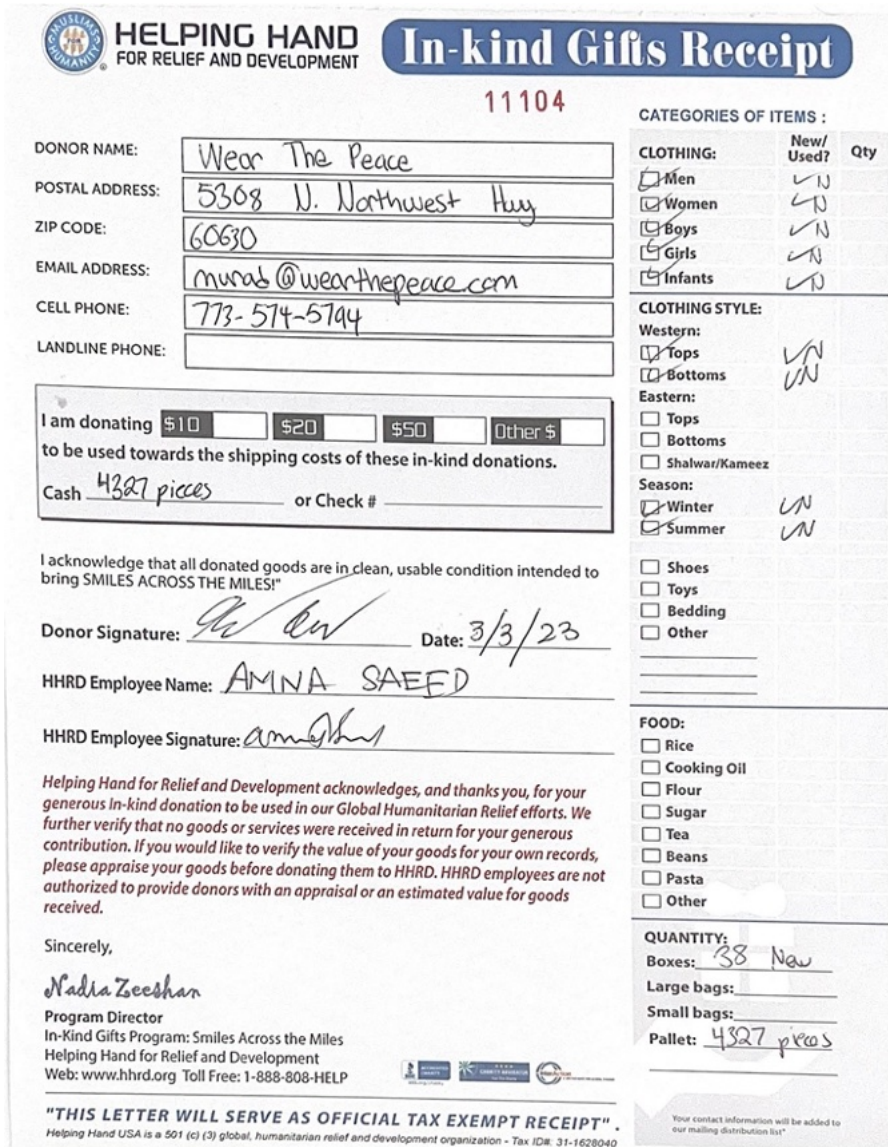 MUSLIMS FOR HUMANITY
HELPING HAND
FOR RELIEF AND DEVELOPMENT
In-kind Gifts Receipt
11104
DONOR NAME: Wear The Peace
POSTAL ADDRESS: 5308 N. Northwest Hwy
ZIP CODE: 60630
EMAIL ADDRESS: murad@wearthepeace.com
CELL PHONE: 773-574-5794
LANDLINE PHONE:
I am donating $10 $20 $50 Other $
to be used towards the shipping costs of these in-kind donations.
Cash 4327 pieces or Check #
I acknowledge that all donated goods are in clean, usable condition intended to
bring SMILES ACROSS THE MILES!"
Donor Signature: Date: 3/3/23
HHRD Employee Name: AMNA SAEED
HHRD Employee Signature:
Helping Hand for Relief and Development acknowledges, and thanks you, for your
generous In-kind donation to be used in our Global Humanitarian Relief efforts. We
further verify that no goods or services were received in return for your generous
contribution. If you would like to verify the value of your goods for your own records,
please appraise your goods before donating them to HHRD. HHRD employees are not
authorized to provide donors with an appraisal or an estimated value for goods
received.
Sincerely,
Nadia Zeeshan
Program Director
In-Kind Gifts Program: Smiles Across the Miles
Helping Hand for Relief and Development
Web: www.hhrd.org Toll Free: 1-888-808-HELP
"THIS LETTER WILL SERVE AS OFFICIAL TAX EXEMPT RECEIPT" .
Helping Hand USA is a 501 (c) (3) global, humanitarian relief and development organization - Tax ID#: 31-1628040
CATEGORIES OF ITEMS :
CLOTHING: New/ Used? Qty
Men N
Women N
Boys N
Girls N
Infants N
CLOTHING STYLE:
Western:
Tops N
Bottoms N
Eastern:
Tops
Bottoms
Shalwar/Kameez
Season:
Winter N
Summer N
Shoes
Toys
Bedding
Other
FOOD:
Rice
Cooking Oil
Flour
Sugar
Tea
Beans
Pasta
Other
QUANTITY:
Boxes: 38 New
Large bags:
Small bags:
Pallet: 4327 pieces
Your contact information will be added to
our mailing distribution list"